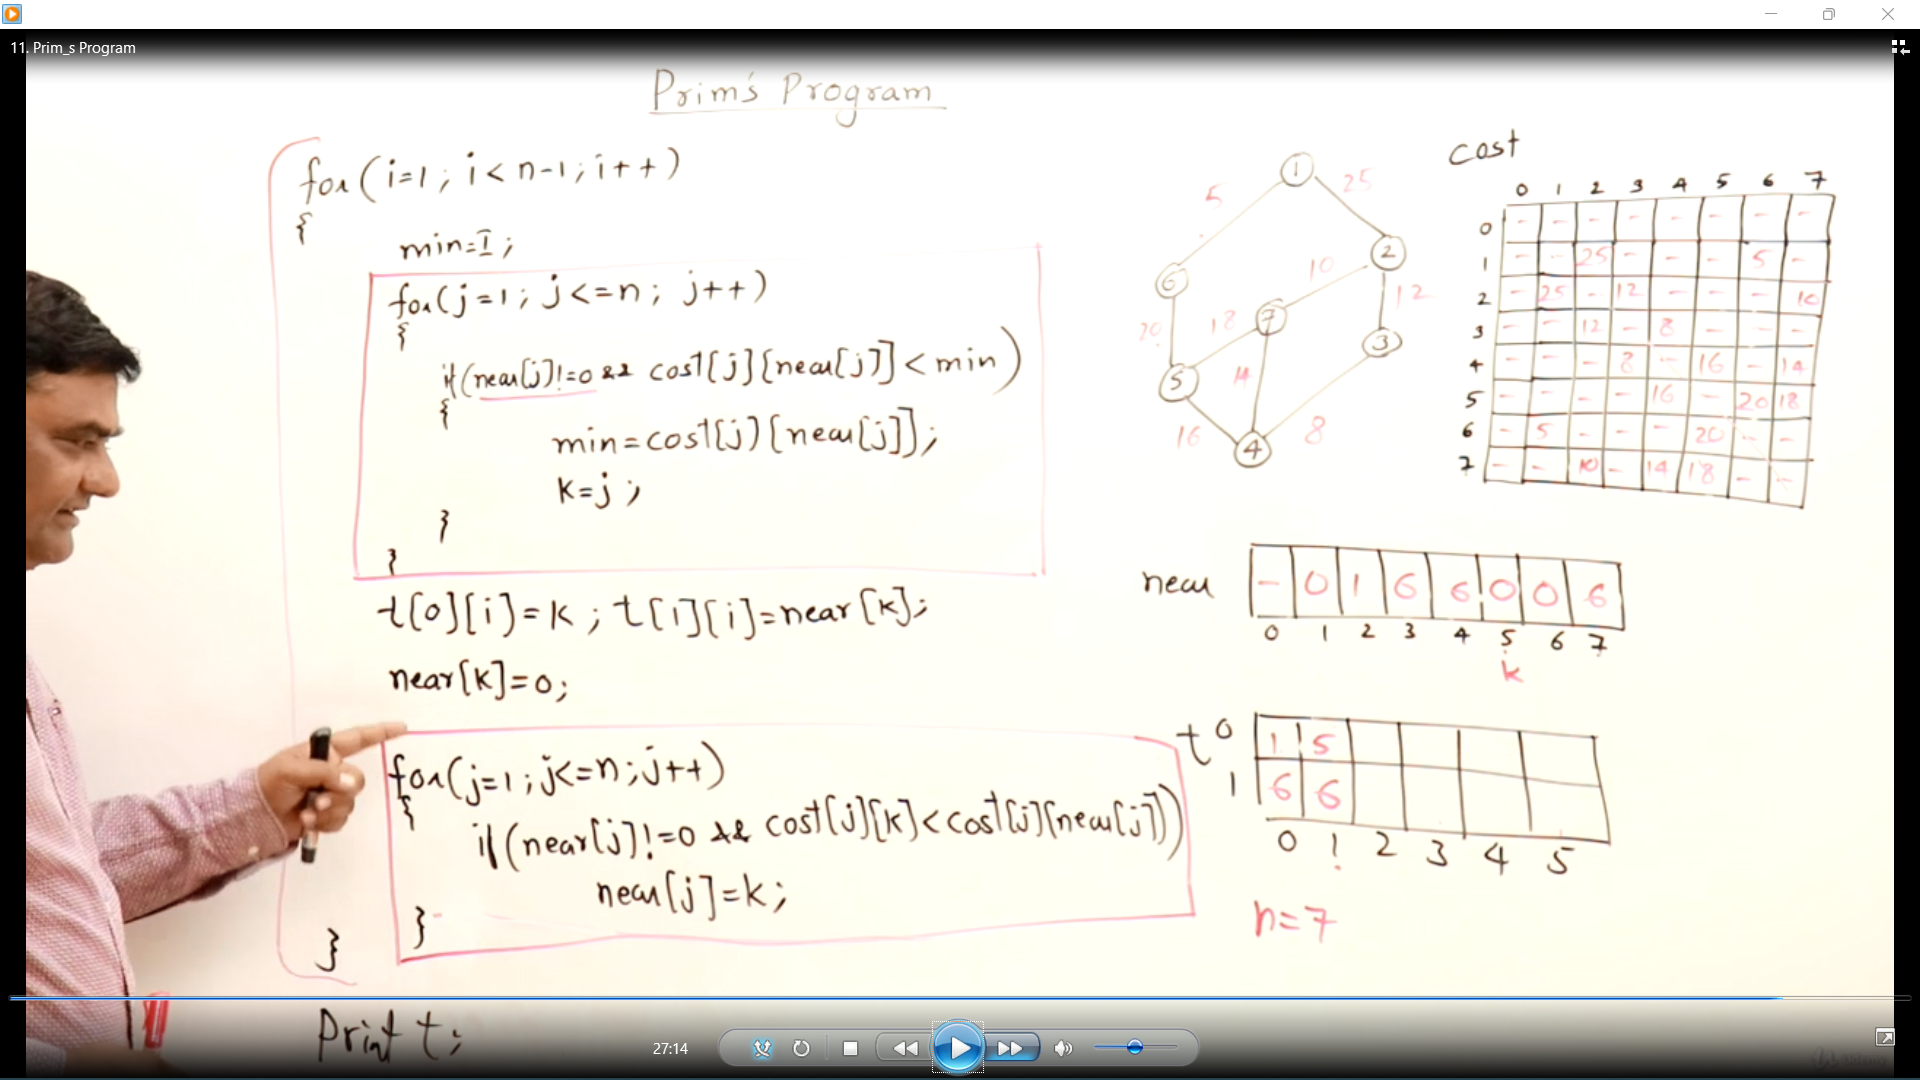 11. Prim_s Program
Prim's Program
for(i=1; i<n-1; i++)
{
min=I;
for(j=1; j<=n; j++)
{
if(near[j]!=0 && cost[j][near[j]]<min)
{
min=cost[j][near[j]];
k=j;
}
}
t[0][i]=k; t[1][i]=near[k];
near[k]=0;
for(j=1; j<=n; j++)
{
if(near[j]!=0 && cost[j][k]<cost[j][near[j]])
near[j]=k;
}
}
Print t;
1
5 25
2
6 10
7 12
20 18
3
5 14
16 4 8
cost
0 1 2 3 4 5 6 7
0 - - - - - - - -
1 - - 25 - - - 5 -
2 - 25 - 12 - - - 10
3 - - 12 - 8 - - -
4 - - - 8 - 16 - 14
5 - - - - 16 - 20 18
6 - 5 - - - 20 - -
7 - - 10 - 14 18 - -
near - 0 1 6 6 0 0 6
0 1 2 3 4 5 6 7
k
t 0 1 5
1 6 6
0 1 2 3 4 5
n=7
27:14